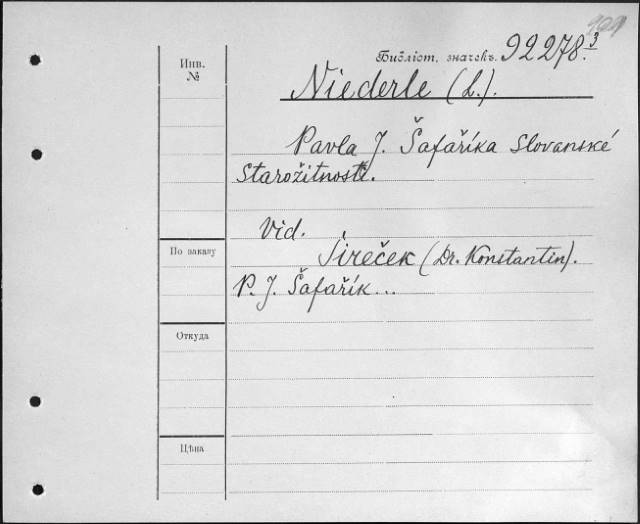 Инв.
№
Библіот. значекъ. 92278.3
Niederle (L.).
Pavla J. Šafaříka Slovanské
Starožitnosti.
Vid.
По заказу
Jireček (Dr. Konstantin).
P. J. Šafařík...
Откуда
Цѣна